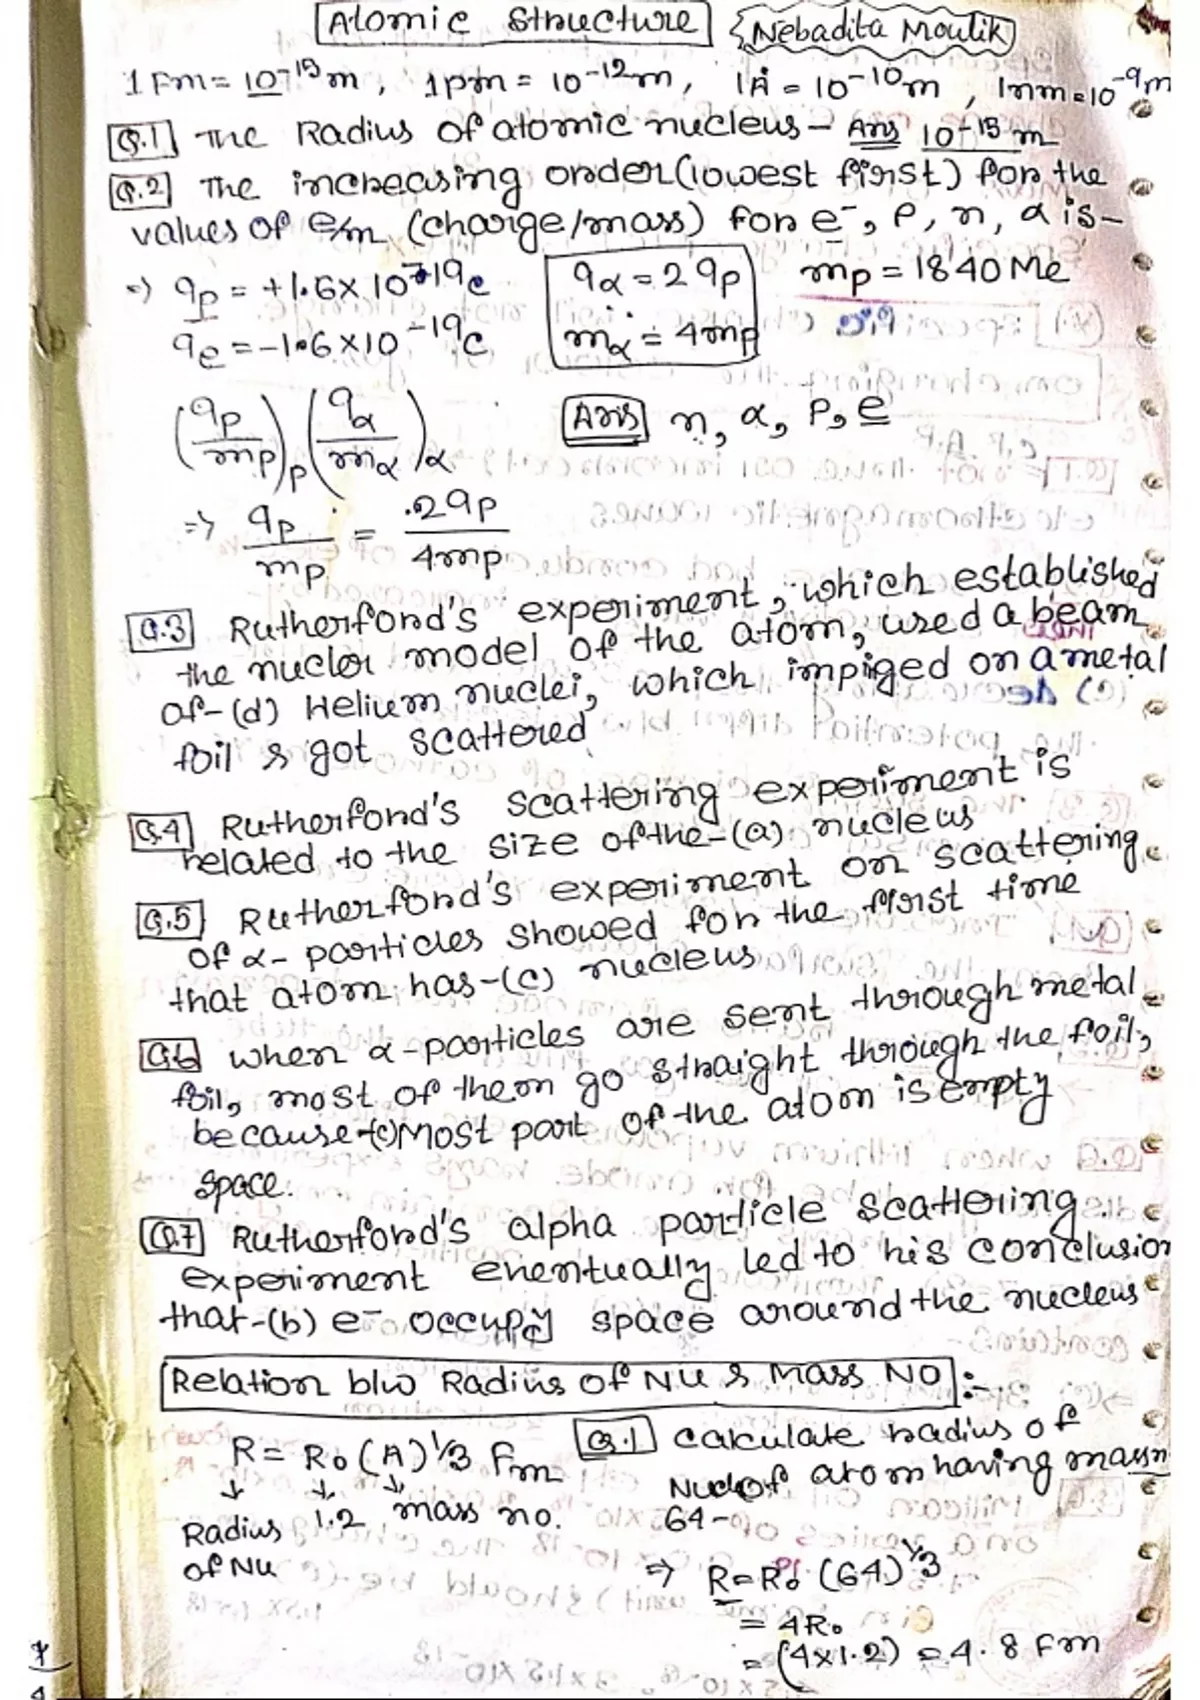 Atomic Structure
Nebadita Moulik
1 Fm = 10⁻¹⁵m, 1pm = 10⁻¹²m, 1Å = 10⁻¹⁰m, 1nm = 10⁻⁹m
Q.1 The Radius of atomic nucleus - Ans 10⁻¹⁵ m
Q.2 The increasing order (lowest first) for the
values of e/m (charge/mass) for e⁻, P, n, α is-
=> qp = +1.6×10⁻¹⁹c
qe = -1.6×10⁻¹⁹c
qα = 2qp
mα = 4mp
mp = 1840 Me
(qp/mp)p (qα/mα)α
Ans n, α, P, e
=> qp/mp = 2qp/4mp
Q.3 Rutherford's experiment, which established
the nuclor model of the atom, used a beam
of-(d) Helium nuclei, which impiged on a metal
foil & got scattered
Q.4 Rutherford's scattering experiment is
related to the size of the-(a) nucleus
Q.5 Rutherford's experiment on scattering
of α- particles showed for the first time
that atom has-(c) nucleus
Q.6 when α-particles are sent through metal
foil, most of them go straight through the foil,
because-(c) Most part of the atom is empty
space.
Q.7 Rutherford's alpha particle scattering
experiment eventually led to his conclusion
that-(b) e⁻ occupy space around the nucleus
Relation b/w Radius of Nu & Mass No :-
R = R₀ (A)^1/3 Fm
Radius of Nu
1.2
mass no.
Q.1 calculate radius of
Nu of atom having mass n
64-
=> R = R₀ (64)^1/3
= 4R₀
= (4×1.2) = 4.8 Fm